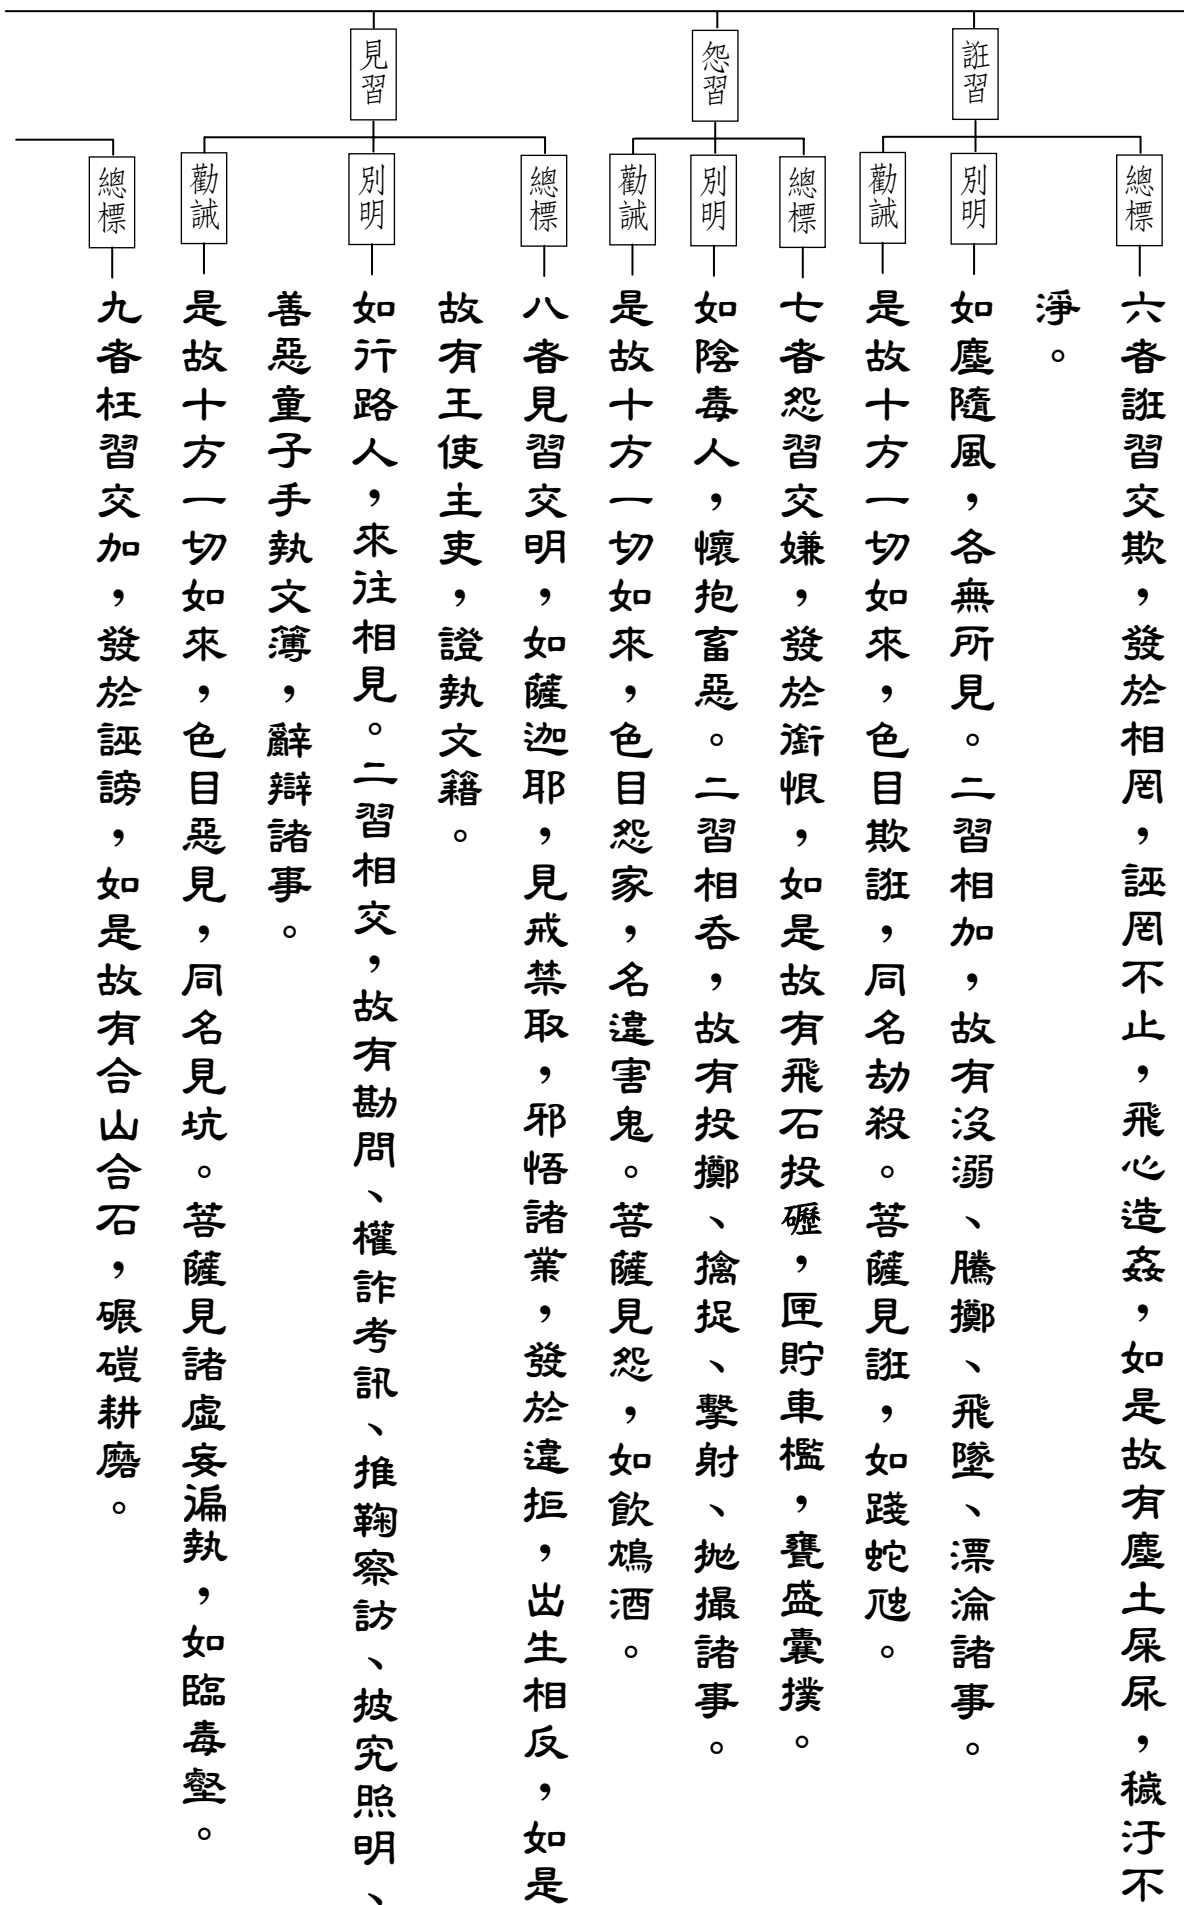 誑習
總標
六者誑習交欺，發於相罔，誣罔不止，飛心造姦，如是故有塵土屎尿，穢汙不
淨。
別明
如塵隨風，各無所見。二習相加，故有沒溺、騰擲、飛墜、漂淪諸事。
勸誡
是故十方一切如來，色目欺誑，同名劫殺。菩薩見誑，如踐蛇虺。
怨習
總標
七者怨習交嫌，發於銜恨，如是故有飛石投礰，匣貯車檻，甕盛囊撲。
別明
如陰毒人，懷抱畜惡。二習相吞，故有投擲、擒捉、擊射、拋撮諸事。
勸誡
是故十方一切如來，色目怨家，名違害鬼。菩薩見怨，如飲鴆酒。
見習
總標
八者見習交明，如薩迦耶，見戒禁取，邪悟諸業，發於違拒，出生相反，如是
故有王使主吏，證執文籍。
別明
如行路人，來往相見。二習相交，故有勘問、權詐考訊、推鞠察訪、披究照明、
善惡童子手執文簿，辭辯諸事。
勸誡
是故十方一切如來，色目惡見，同名見坑。菩薩見諸虛妄遍執，如臨毒壑。
總標
九者枉習交加，發於誣謗，如是故有合山合石，碾磑耕磨。